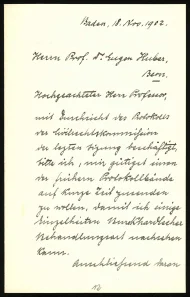 Baden, 18. Nov. 1902.
Herrn Prof. Dr. Eugen Huber,
Bern.
Hochgeachteter Herr Professor,
mit Durchsicht des Protokolls
der Civilrechtskommission
der letzten Sitzung beschäftigt,
bitte ich, mir gütigst einen
der frühern Protokollbände
auf kurze Zeit zusenden
zu wollen, damit ich einige
Einzelheiten
Behandlungsart nachsehen
kann.
Anschliessend